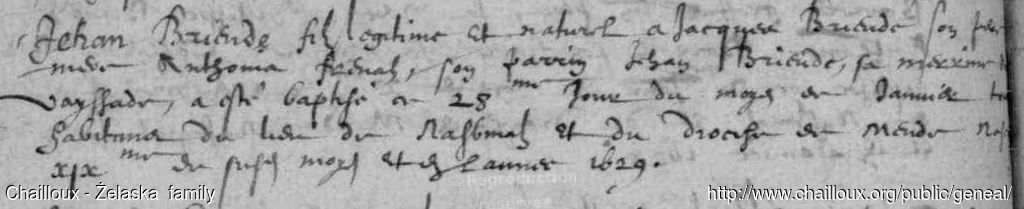 Jehan Briende filz legitime et naturel a Jacques Briende son per
mere Anthonia son parrin Jehan Briende, sa merrine
Vayssade, a esté baptisé ce 28 me Jour du moys de Janvier
habitans du lieu de et du diocese de Mende
XIX me de moys et de l'annee 1629.
Reproduction
Chailloux - Želaska family
http://www.chailloux.org/public/geneal/